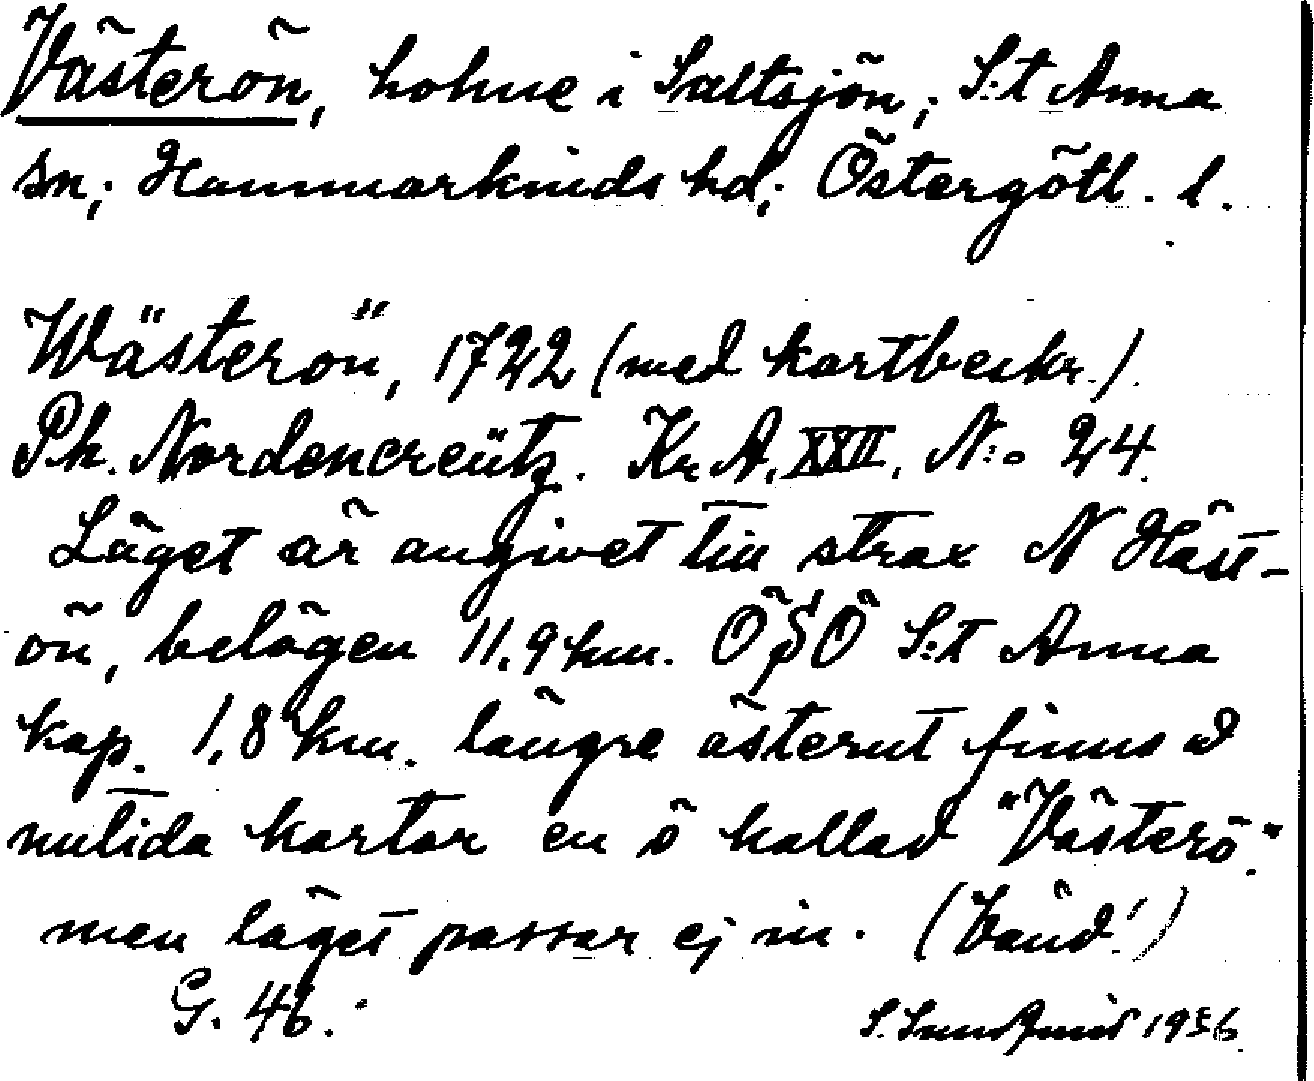 Västerön, holme i Saltsjön; S:t Anna
sn; Hammarkinds hd; Östergötl. l.
Wästerön, 1722 (med kartbeskr.)
Ph. Nordencreütz. Kr. A. XXII. N:o 24.
Läget är angivet till strax N Häst-
ön, belägen 11,9 km. ÖSÖ S:t Anna
kap. 1,8 km. längre österut finns å
nutida kartor en ö kallad "Västerö".
men läget passar ej in. (Vänd!)
G. 46.
S. Sundquist 1936